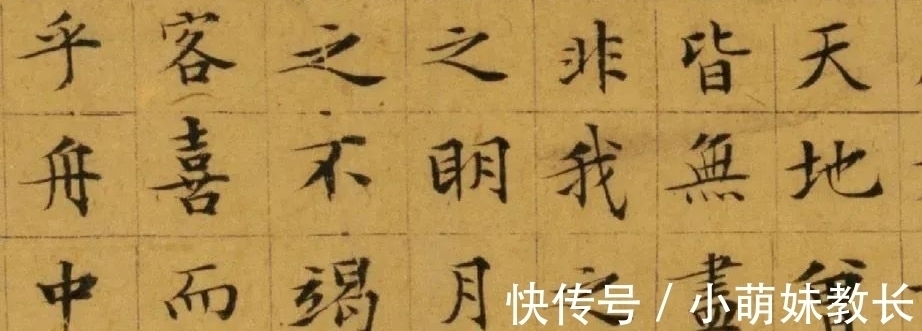 天地
皆無盡
非我之
之明月
之不竭
客喜而
乎舟中
快传号 / 小萌妹教长